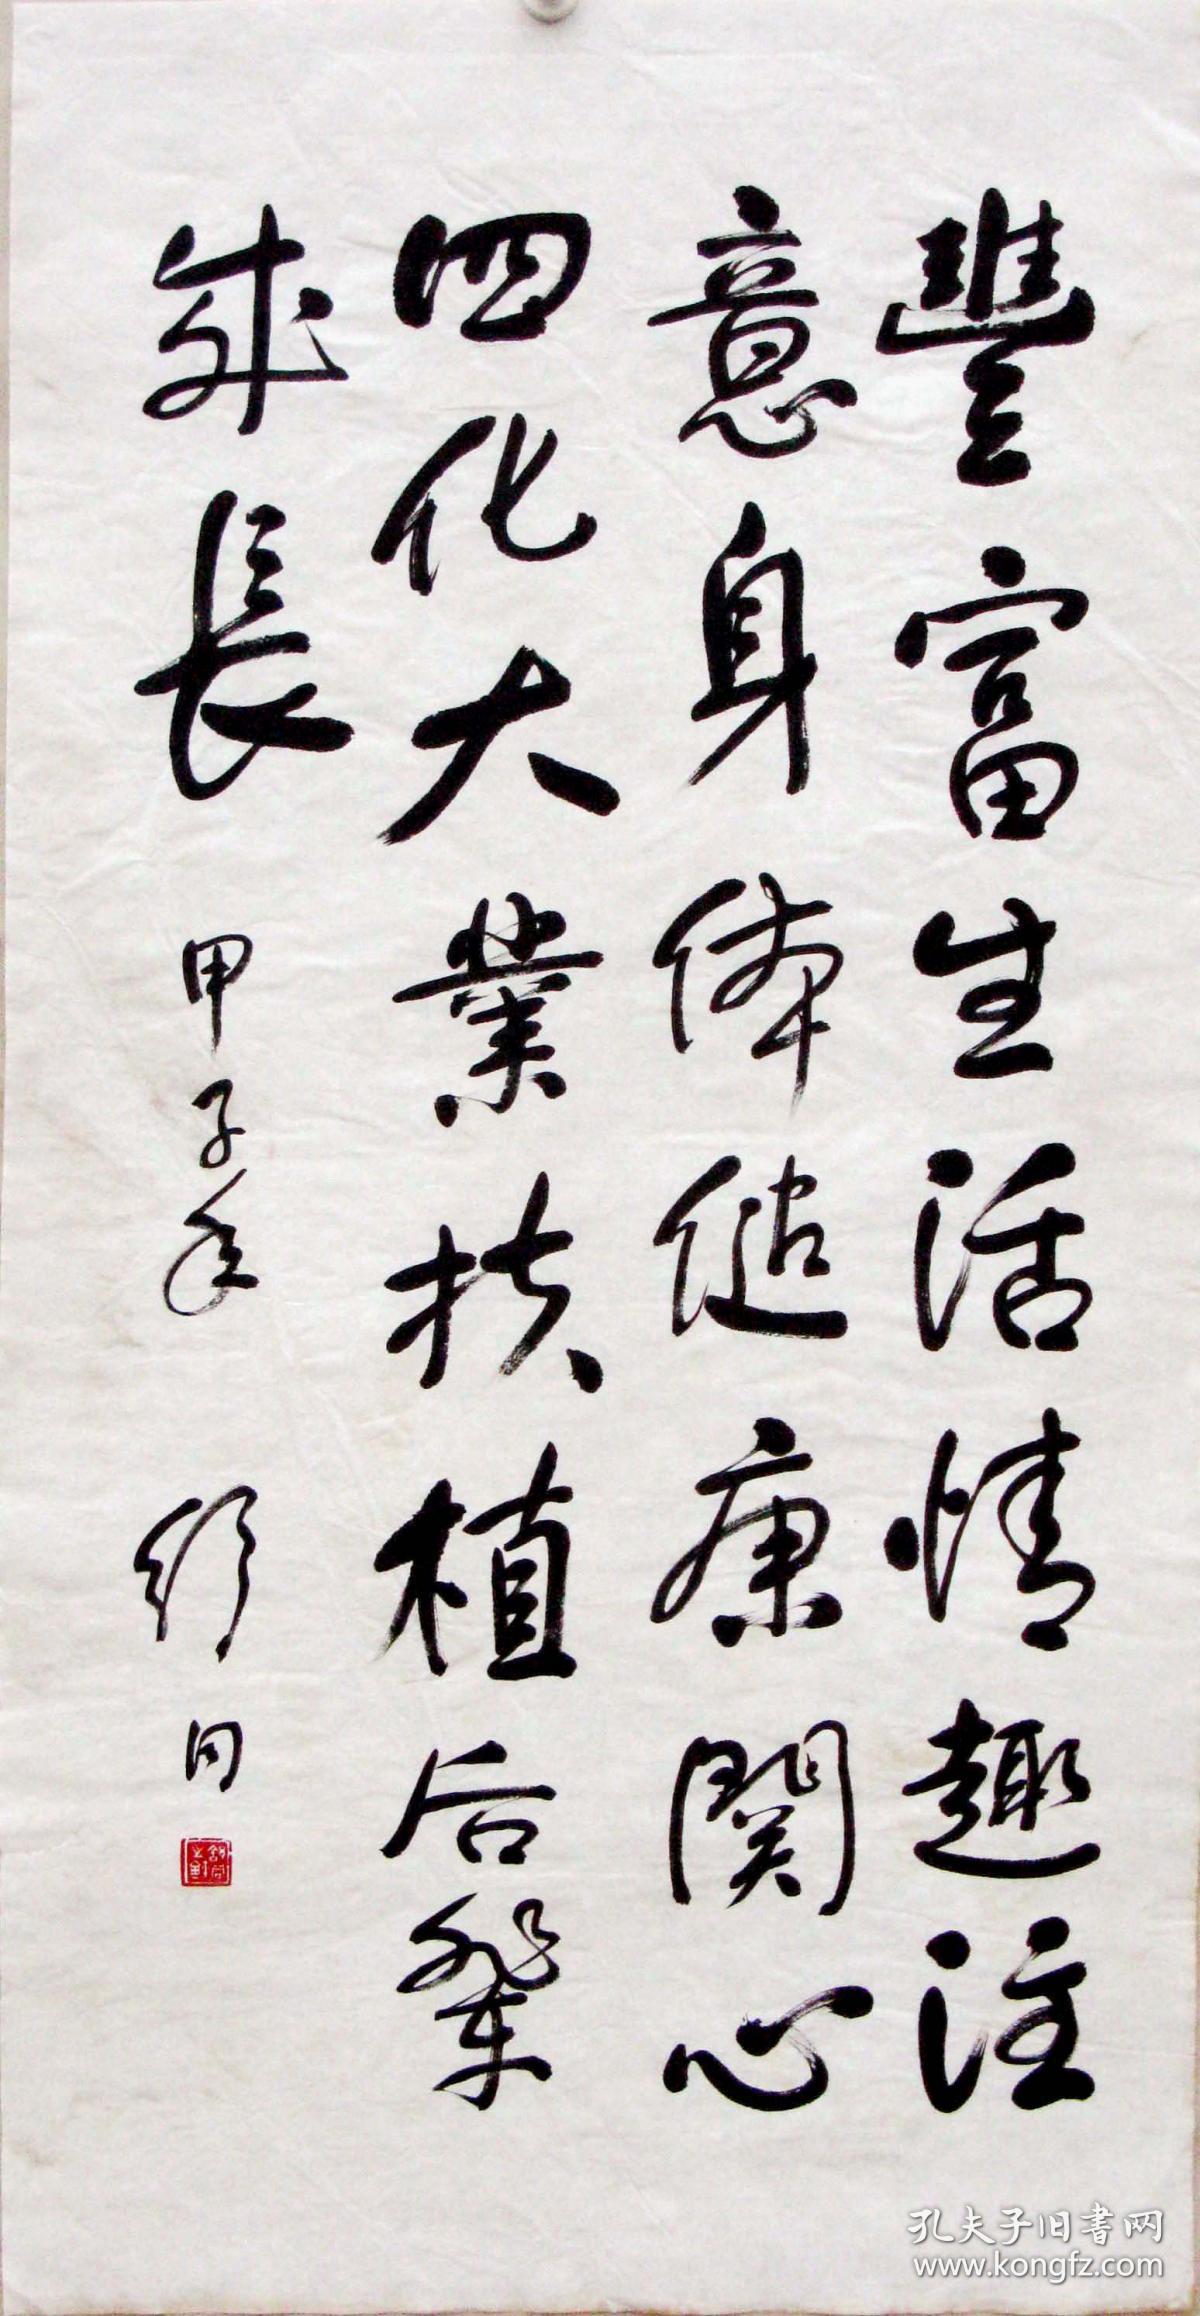 豐富生活情趣注
意身体健康関心
四化大業扶植后輩
成長 甲子年 舒同
孔夫子旧書网
www.kongfz.com